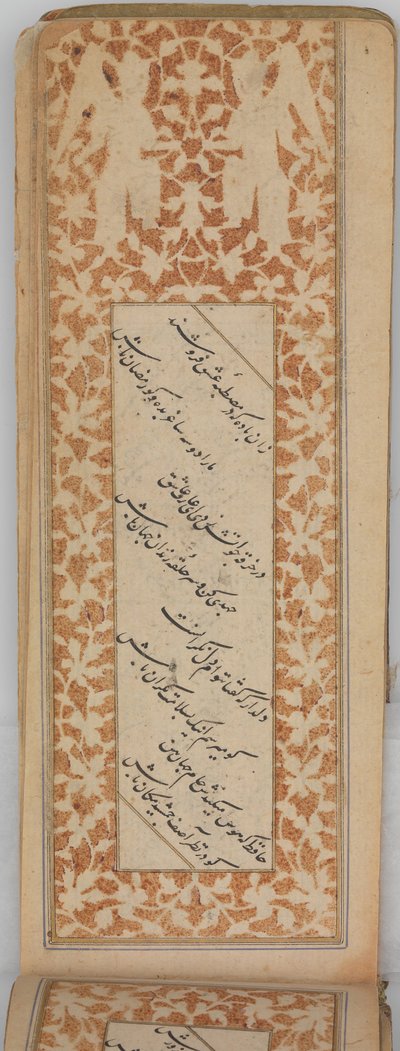 زان باده که در مصطبهٔ عشق فروشند
ما را دو سه ساغر بده و گو رمضان باش
در خرقه چو آتش زدی ای عارف عاشق
جهدی کن و سرحلقه رندان جهان باش
دلدار که گفتا بتوام دل نگرانست
گو میرسم اینک بسلامت نگران باش
حافظ که هوس میکندش جام جهان بین
گو در نظر آصف جمشید مکان باش